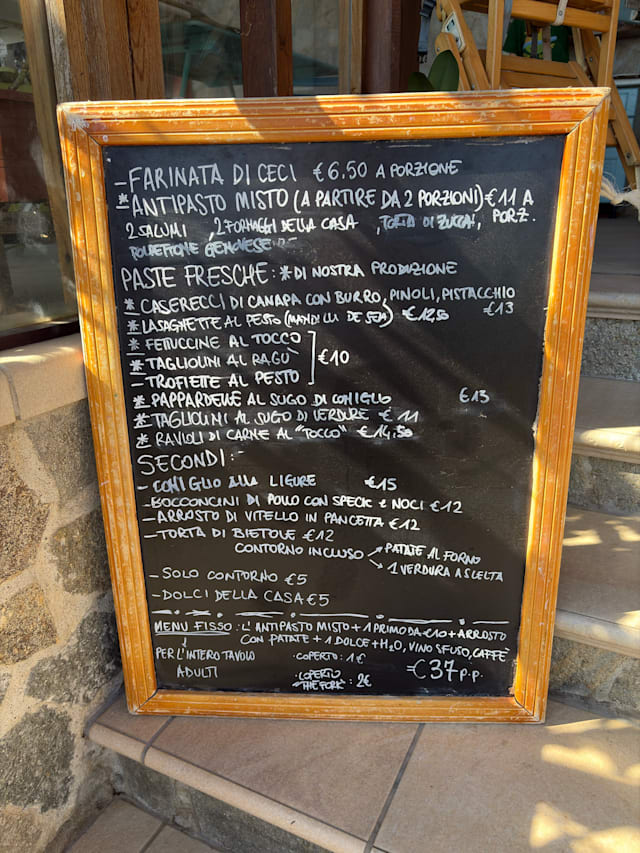 - FARINATA DI CECI €6.50 A PORZIONE
* ANTIPASTO MISTO (A PARTIRE DA 2 PORZIONI) €11 A PORZ.
2 SALUMI , 2 FORMAGGI DELLA CASA , TORTA DI ZUCCA ,
GENOVESE
PASTE FRESCHE: * DI NOSTRA PRODUZIONE
* CASERECCI DI CANAPA CON BURRO, PINOLI, PISTACCHIO €13
* LASAGNETTE AL PESTO (MANDILLI DE SEA) €12,50
* FETTUCCINE AL TOCCO
* TAGLIOLINI AL RAGÙ €10
- TROFIETTE AL PESTO
* PAPPARDELLE AL SUGO DI CONIGLIO €13
* TAGLIOLINI AL SUGO DI VERDURE €11
* RAVIOLI DI CARNE AL "TOCCO" €14,50
SECONDI:-
- CONIGLIO ALLA LIGURE €15
- BOCCONCINI DI POLLO CON SPECK E NOCI €12
- ARROSTO DI VITELLO IN PANCETTA €12
- TORTA DI BIETOLE €12
CONTORNO INCLUSO → PATATE AL FORNO
→ 1 VERDURA A SCELTA
- SOLO CONTORNO €5
- DOLCI DELLA CASA €5
MENU FISSO: L'ANTIPASTO MISTO + 1 PRIMO DA €10 + ARROSTO
CON PATATE + 1 DOLCE + H2O, VINO SFUSO, CAFFÈ
PER L'INTERO TAVOLO · COPERTO: 1€ = €37 P.P.
ADULTI · COPERTO "THE FORK": 2€